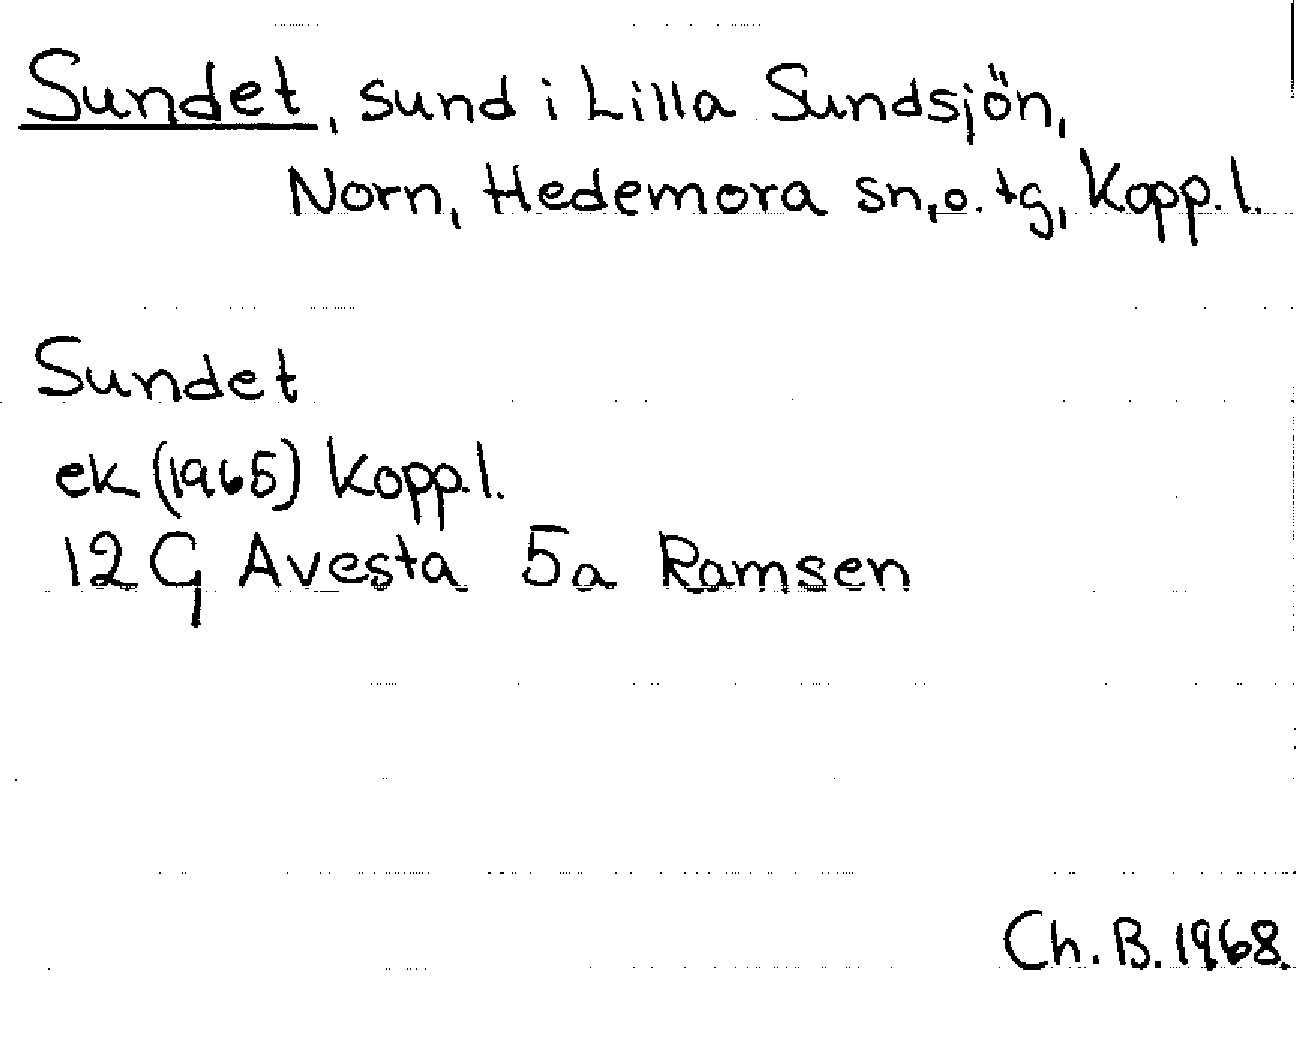 Sundet, sund i Lilla Sundsjön,
Norn, Hedemora sn, o. tg, Kopp. l.
Sundet
ek (1965) Kopp.l.
12 G Avesta 5a Ramsen
Ch. B. 1968.